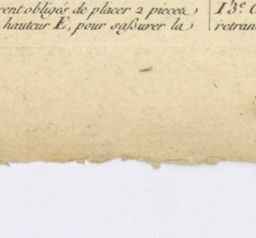 rent obligés de placer 2 pieces
hauteur E, pour saſsurer la
13.e
retran